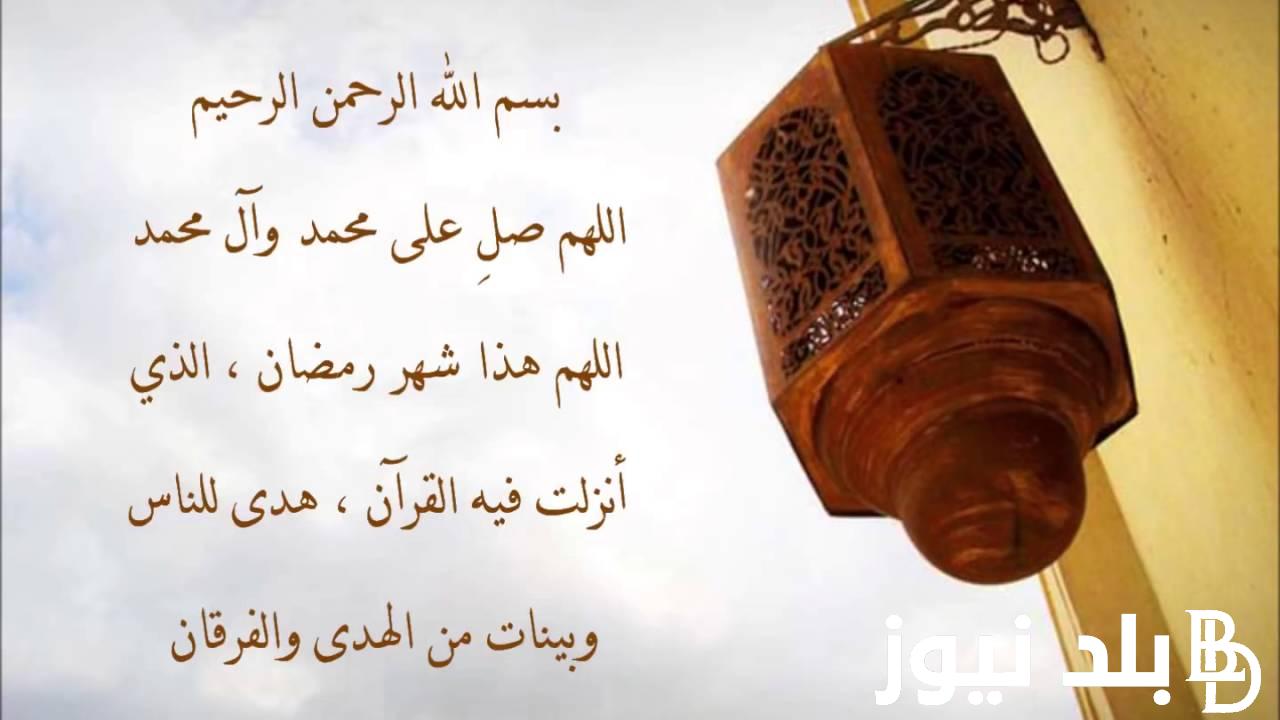 بسم الله الرحمن الرحيم
اللهم صلِ على محمد وآل محمد
اللهم هذا شهر رمضان ، الذي
أنزلت فيه القرآن ، هدى للناس
وبينات من الهدى والفرقان
بلد نيوز BD